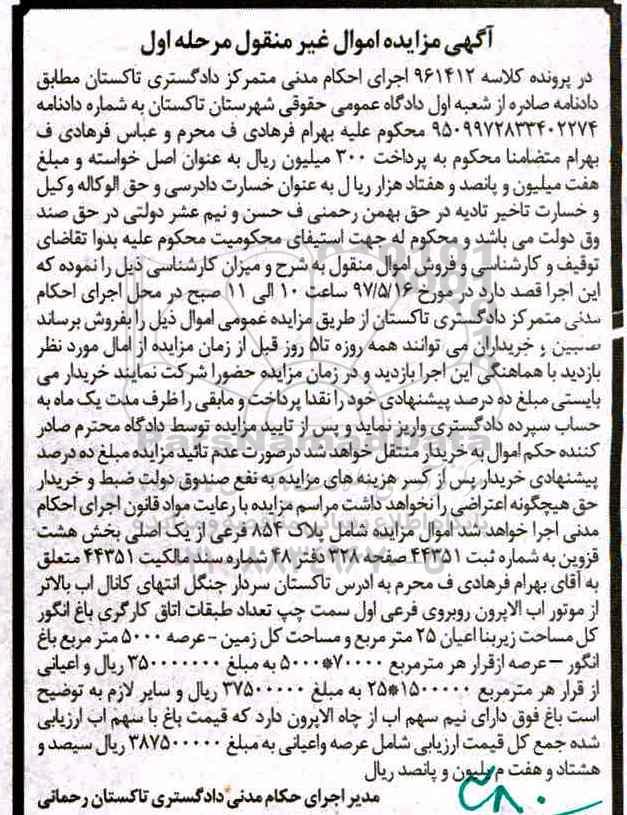 آگهی مزایده اموال غیر منقول مرحله اول
در پرونده کلاسه ۹۶۱۴۱۲ اجرای احکام مدنی متمرکز دادگستری تاکستان مطابق
دادنامه صادره از شعبه اول دادگاه عمومی حقوقی شهرستان تاکستان به شماره دادنامه
۹۵۰۹۹۷۲۸۳۳۴۰۲۲۷۴ محکوم علیه بهرام فرهادی ف محرم و عباس فرهادی ف
بهرام متضامنا محکوم به پرداخت ۳۰۰ میلیون ریال به عنوان اصل خواسته و مبلغ
هفت میلیون و پانصد و هفتاد هزار ریا ل به عنوان خسارت دادرسی و حق الوکاله وکیل
و خسارت تاخیر تادیه در حق بهمن رحمنی ف حسن و نیم عشر دولتی در حق صند
وق دولت می باشد و محکوم له جهت استیفای محکومیت محکوم علیه بدوا تقاضای
توقیف و کارشناسی و فروش اموال منقول به شرح و میزان کارشناسی ذیل را نموده که
این اجرا قصد دارد در مورخ ۹۷/۵/۱۶ ساعت ۱۰ الی ۱۱ صبح در محل اجرای احکام
مدنی متمرکز دادگستری تاکستان از طریق مزایده عمومی اموال ذیل را بفروش برساند
خریداران می توانند همه روزه تا۵ روز قبل از زمان مزایده از امال مورد نظر
بازدید با هماهنگی این اجرا بازدید و در زمان مزایده حضورا شرکت نمایند خریدار می
بایستی مبلغ ده درصد پیشنهادی خود را نقدا پرداخت و مابقی را ظرف مدت یک ماه به
حساب سپرده دادگستری واریز نماید و پس از تایید مزایده توسط دادگاه محترم صادر
کننده حکم اموال به خریدار منتقل خواهد شد درصورت عدم تائید مزایده مبلغ ده درصد
پیشنهادی خریدار پس از کسر هزینه های مزایده به نفع صندوق دولت ضبط و خریدار
حق هیچگونه اعتراضی را نخواهد داشت مراسم مزایده با رعایت مواد قانون اجرای احکام
مدنی اجرا خواهد شد اموال مزایده شامل پلاک ۸۵۴ فرعی از یک اصلی بخش هشت
قزوین به شماره ثبت ۴۴۳۵۱ صفحه ۳۲۸ دفتر ۴۸ شماره سند مالکیت ۴۴۳۵۱ متعلق
به آقای بهرام فرهادی ف محرم به ادرس تاکستان سردار جنگل انتهای کانال اب بالاتر
از موتور اب الاپرون روبروی فرعی اول سمت چپ تعداد طبقات اتاق کارگری باغ انگور
کل مساحت زیربنا اعیان ۲۵ متر مربع و مساحت کل زمین -عرصه ۵۰۰۰ متر مربع باغ
انگور – عرصه ازقرار هر مترمربع ۷۰۰۰۰*۵۰۰۰ به مبلغ ۳۵۰۰۰۰۰۰۰ ریال و اعیانی
از قرار هر مترمربع ۱۵۰۰۰۰۰*۲۵ به مبلغ ۳۷۵۰۰۰۰۰ ریال و سایر لازم به توضیح
است باغ فوق دارای نیم سهم اب از چاه الاپرون دارد که قیمت باغ با سهم اب ارزیابی
شده جمع کل قیمت ارزیابی شامل عرصه واعیانی به مبلغ ۳۸۷۵۰۰۰۰۰ ریال سیصد و
هشتاد و هفت میلیون و پانصد ریال
مدیر اجرای حکام مدنی دادگستری تاکستان رحمانی